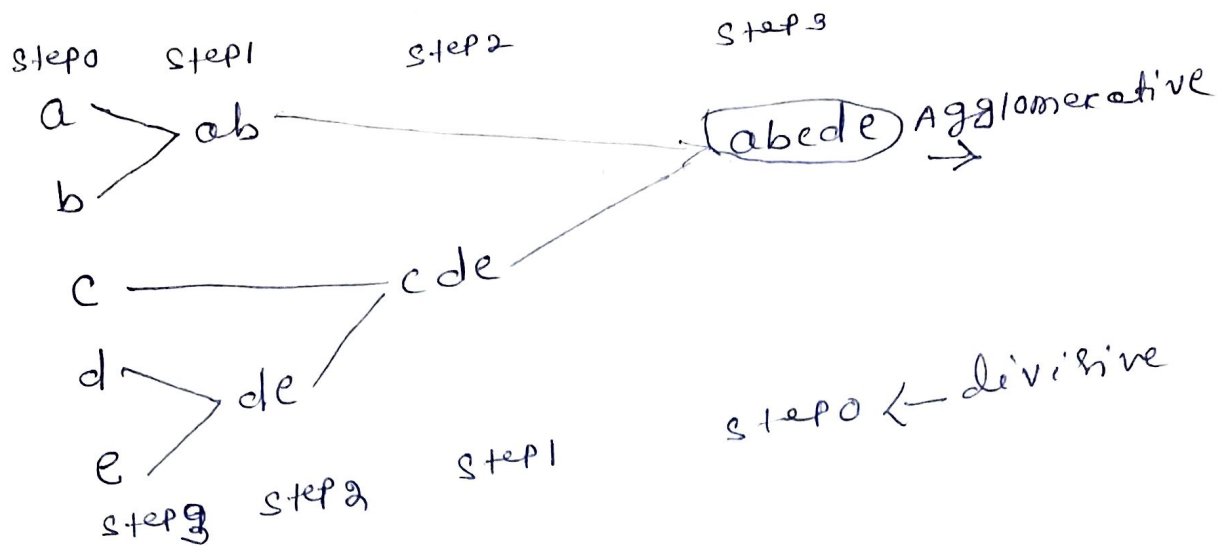 Step0 Step1 Step2 Step3
a ab abede Agglomerative
b
c cde
d de
e
Step0 ← divisive
Step3 Step2 Step1